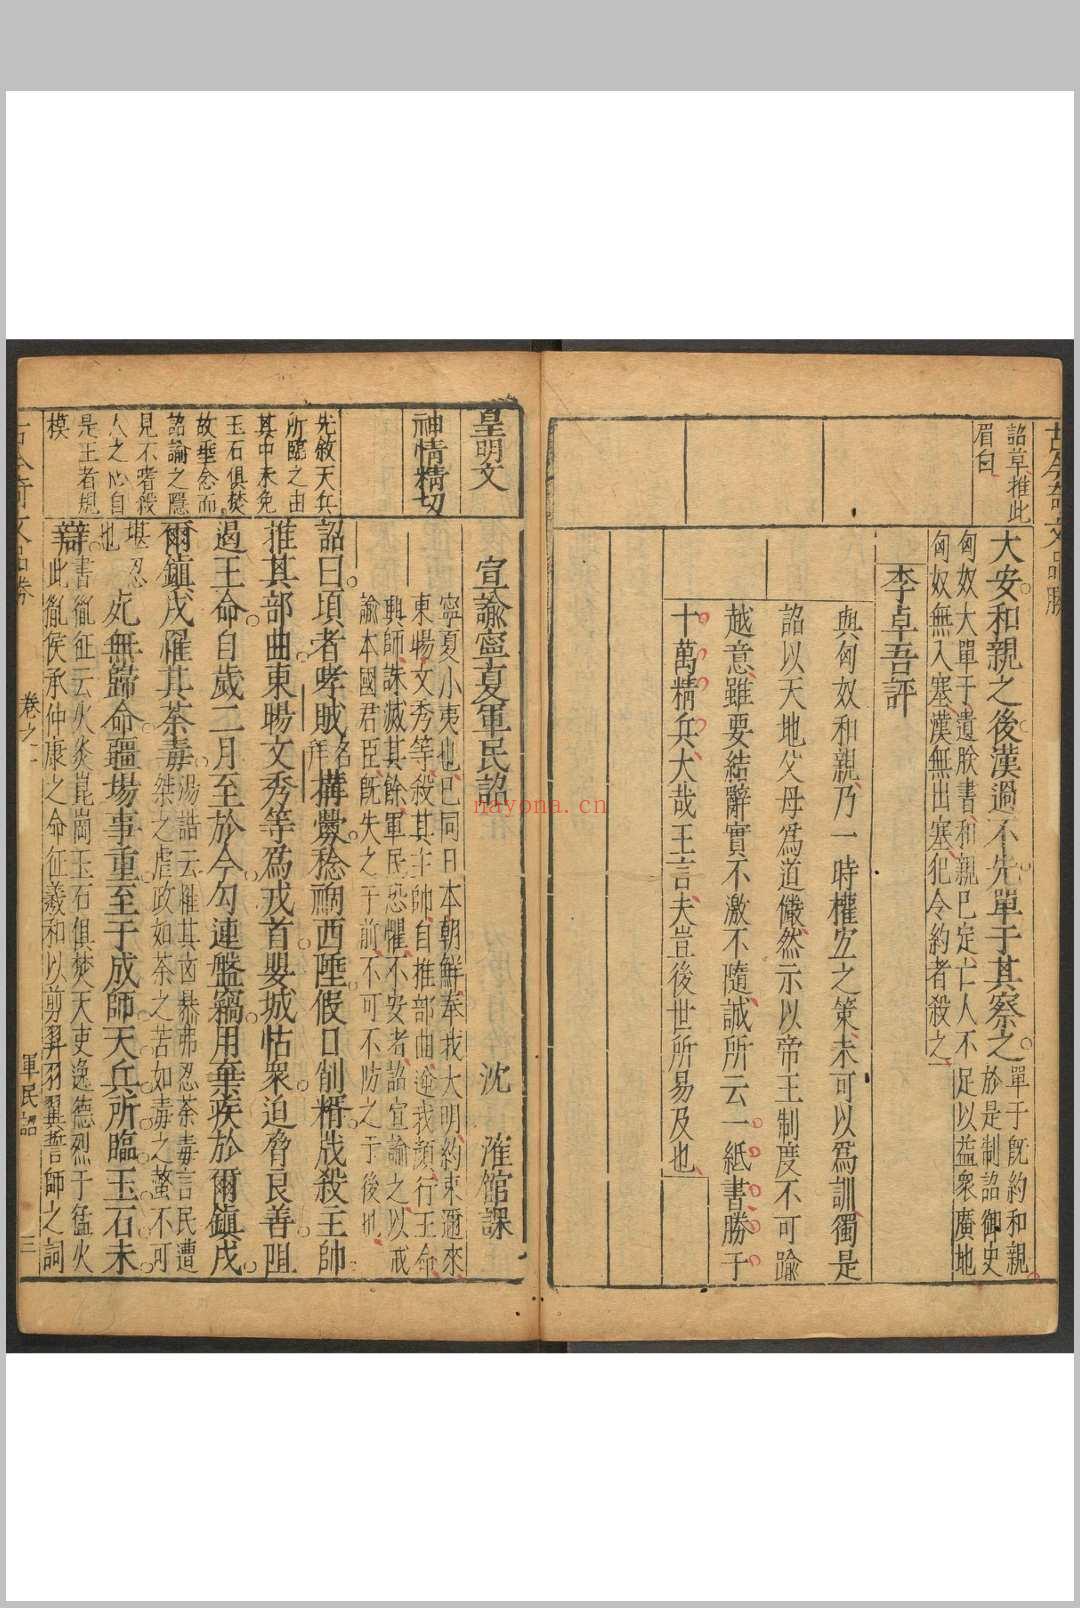 詔草推此
眉曰
大安和親之後漢過不先單于其察之
單于旣約和親
於是制詔御史
匈奴大單于遺朕書和親已定亡人不足以益衆廣地
匈奴無入塞漢無出塞犯令約者殺之
李卓吾評
與匈奴和親乃一時權宜之策未可以爲訓獨是
詔以天地父母爲道儼然示以帝王制度不可踰
越意雖要結辭實不激不隨誠所云一紙書勝于
十萬精兵大哉王言夫豈後世所易及也
皇明文
宣諭寧夏軍民詔
沈
㴶館課
神情精切
寧夏小夷也已同日本朝鮮奉我大明約束邇來
東暘文秀等殺其主帥自推部曲逆我顏行王命
興師誅滅其餘軍民恐懼不安者詔宣諭之以戒
諭本國君臣旣失之于前不可不防之于後也
先敘天兵
所臨之由
其中未免
玉石俱焚
故垂念而
詔諭之隱
見不嗜殺
人之心自
是王者規
模
詔曰頃者哱賊拜構釁稔禍西陲假口削糈戕殺主帥
推其部曲東暘文秀等爲戎首嬰城怙衆迫脅良善阻
遏王命自歲二月至於今勾連盤竊用棄疾於爾鎮戍
爾鎮戍罹其荼毒
湯誥云罹其凶害弗忍荼毒言民遭
桀之虐政如荼之苦如毒之螫不可
堪忍
也
死無歸命疆場事重至于成師天兵所臨玉石未
辯
書胤征云火炎崑岡玉石俱焚天吏逸德烈于猛火
此胤侯承仲康之命征羲和以剪羿羽翼誓師之詞
卷之一
軍民詔
三
nayona.cn